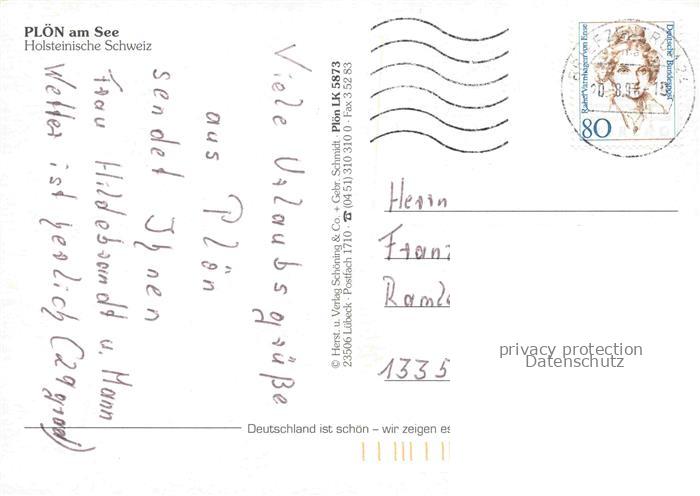 PLÖN am See
Holsteinische Schweiz
Viele Urlaubsgrüße
aus Plön
sendet Ihnen
Frau Hildebrandt u. Mann
Wetter ist herlich (29 grad)
© Herst. u. Verlag Schöning & Co. + Gebr. Schmidt · Plön LK 5873
23506 Lübeck · Postfach 1710 · ☎ (04 51) 310 310 0 · Fax 3 52 83
Rahel Varnhagen von Ense
Deutsche Bundespost
80
Herrn
Franz
1335
privacy protection
Datenschutz
Deutschland ist schön – wir zeigen es